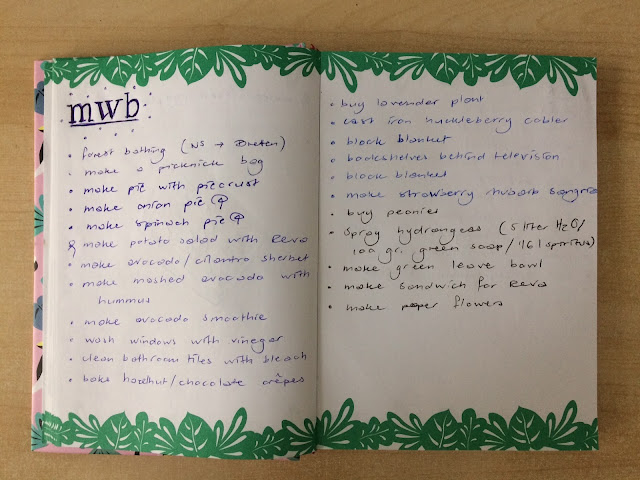 mwb
• forest bathing (NS → Drieten)
• make a picknick bag
• make pie with piecrust
• make onion pie
• make spinach pie
make potato salad with Reva
• make avocado/cilantro sherbet
• make mashed avocado with
hummus
• make avocado smoothie
• wash windows with vinegar
• clean bathroom tiles with bleach
• bake hazelnut/chocolate crêpes
• buy lavender plant
• cast iron huckleberry cobler
• block blanket
• bookshelves behind television
• block blanket
• make strawberry rhubarb sangria
• buy peonies
• spray hydrangeas (5 liter H2O/
100 gr. green soap/ spiritus)
• make green leave bowl
• make sandwich for Reva
• make paper flowers